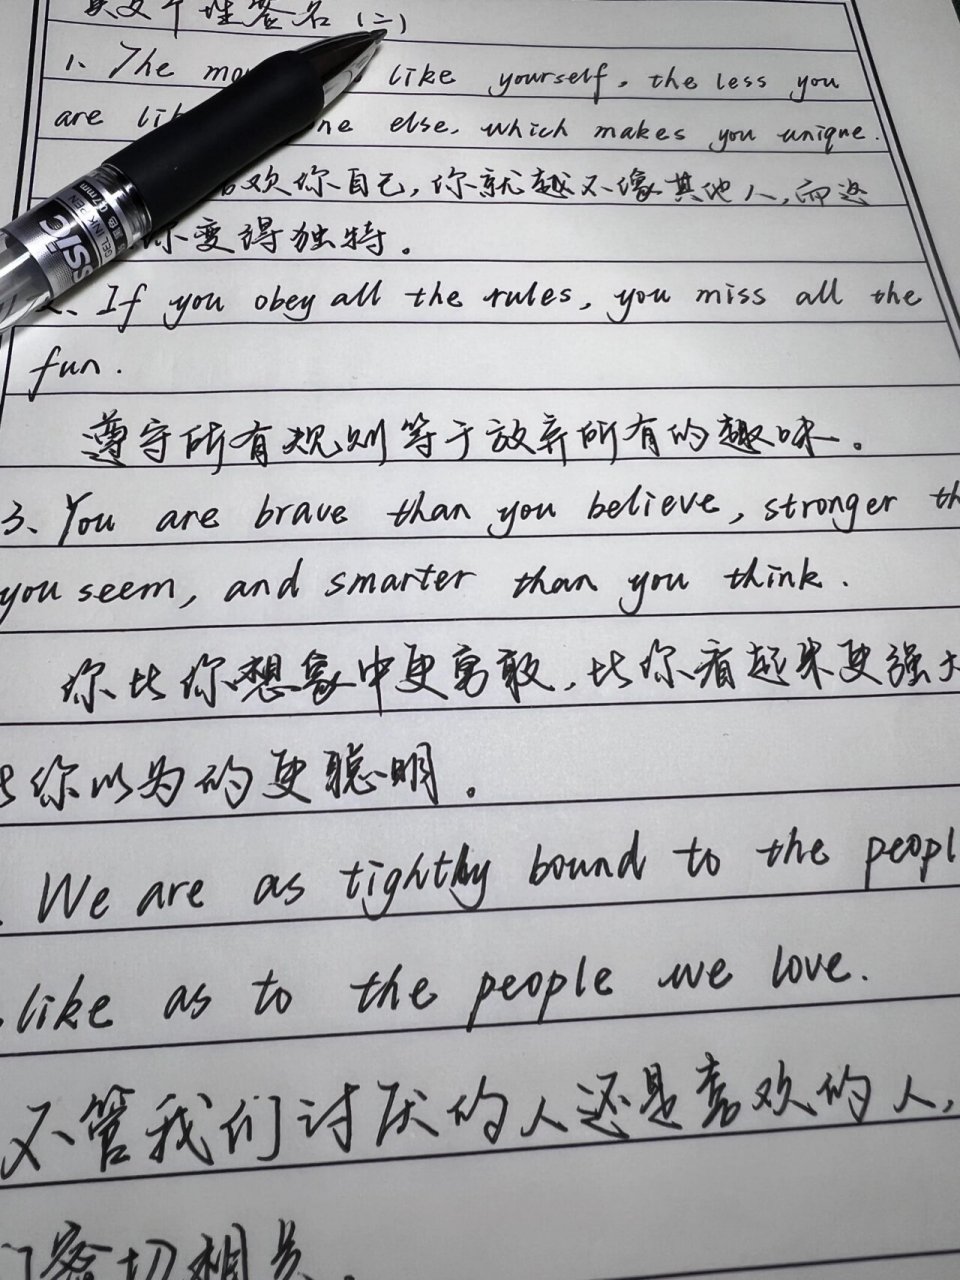 英文个性签名(二)
1、The mo like yourself, the less you
are li ne else, which makes you unique.
喜欢你自己,你就越不像其他人,而这
你变得独特。
If you obey all the rules, you miss all the
fun.
遵守所有规则等于放弃所有的趣味。
3、You are brave than you believe, stronger th
you seem, and smarter than you think.
你比你想象中更勇敢,比你看起来更强大
比你以为的更聪明。
We are as tightly bound to the peopl
like as to the people we love.
不管我们讨厌的人还是喜欢的人,
们密切相关。
GEL INK PEN
0.7mm